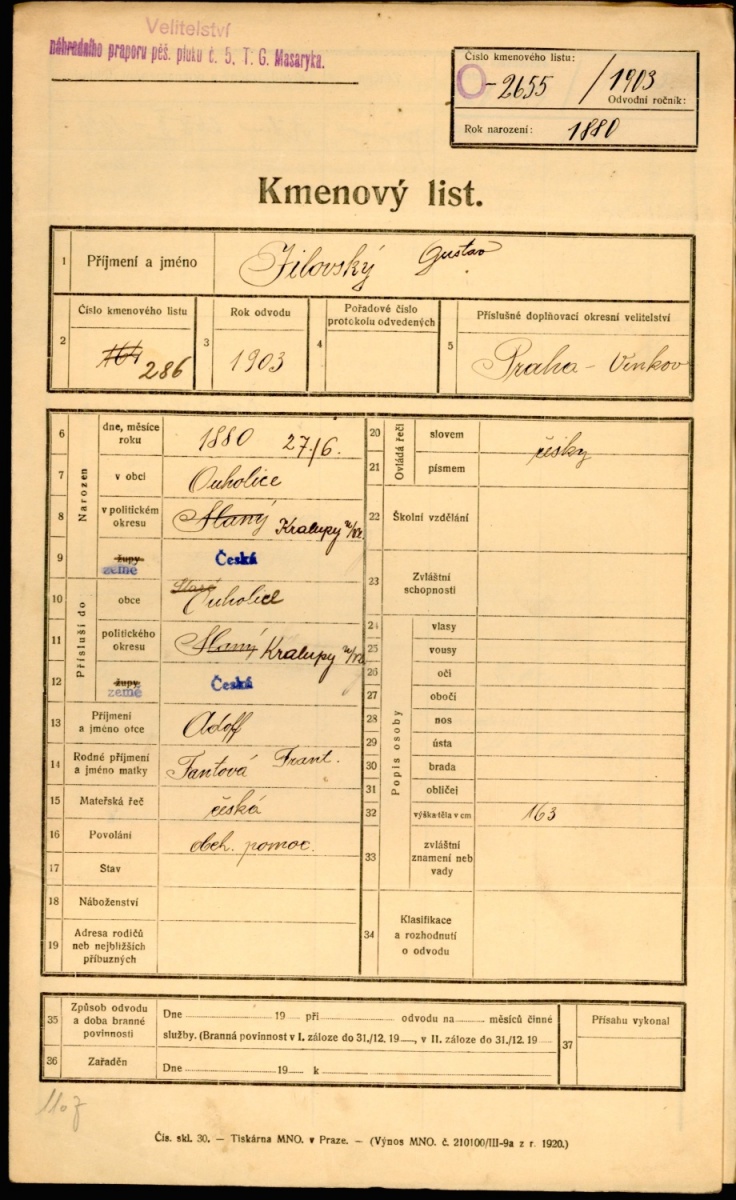 Velitelství
náhradního praporu pěš. pluku č. 5, T. G. Masaryka.
Číslo kmenového listu:
O-2655 / 1903
Odvodní ročník:
Rok narození: 1880
Kmenový list.
1 Příjmení a jméno Jilovský Gustav
2 Číslo kmenového listu 164 286
3 Rok odvodu 1903
4 Pořadové číslo protokolu odvedených
5 Příslušné doplňovací okresní velitelství Praha - Venkov
Narozen
6 dne, měsíce roku 1880 27/6.
7 v obci Ouholice
8 v politickém okresu Slaný Kralupy n/Vl.
9 župy země Česká
Přísluší do
10 obce Staré Ouholice
11 politického okresu Slaný Kralupy n/Vl.
12 župy země Česká
13 Příjmení a jméno otce Adolf
14 Rodné příjmení a jméno matky Fantová Frant.
15 Mateřská řeč česká
16 Povolání obch. pomoc.
17 Stav
18 Náboženství
19 Adresa rodičů neb nejbližších příbuzných
Ovládá řeči
20 slovem česky
21 písmem
22 Školní vzdělání
23 Zvláštní schopnosti
Popis osoby
24 vlasy
25 vousy
26 oči
27 obočí
28 nos
29 ústa
30 brada
31 obličej
32 výška těla v cm 163
33 zvláštní znamení neb vady
34 Klasifikace a rozhodnutí o odvodu
35 Způsob odvodu a doba branné povinnosti
Dne 19 při odvodu na měsíců činné
služby. (Branná povinnost v I. záloze do 31./12. 19, v II. záloze do 31./12. 19
36 Zařaděn Dne 19 k
37 Přísahu vykonal
Čís. skl. 30. — Tiskárna MNO. v Praze. — (Výnos MNO. č. 210100/III-9a z r. 1920.)